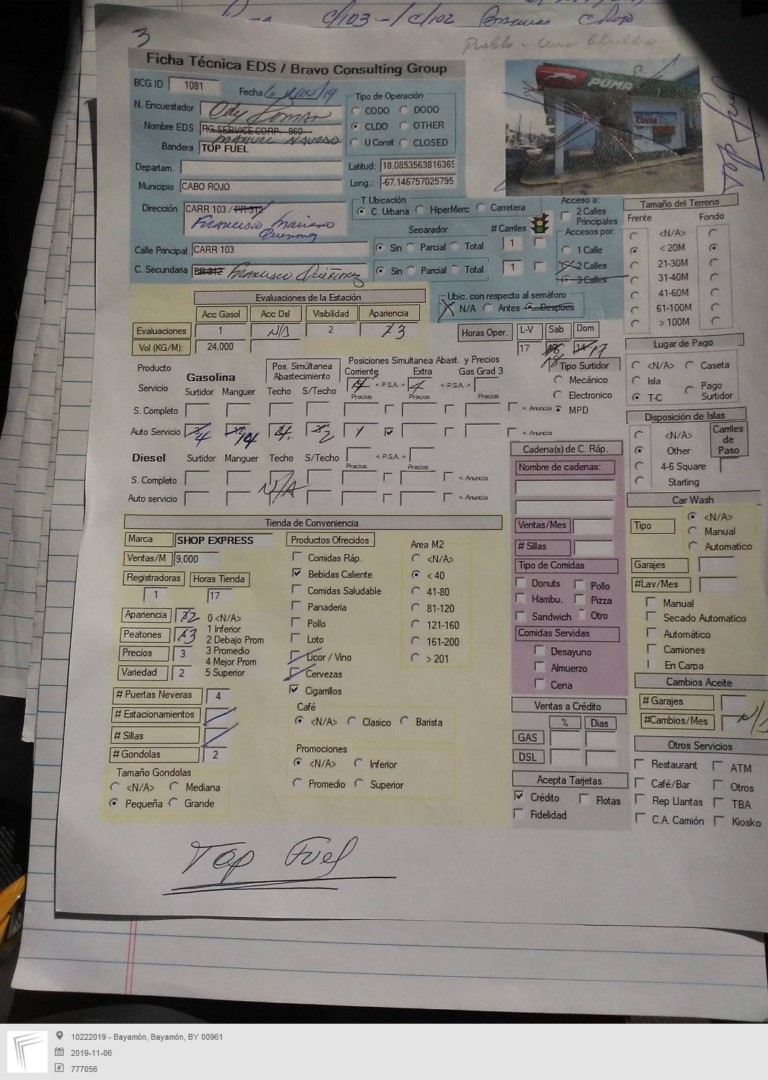 C/103 - C/102
3
Ficha Técnica EDS / Bravo Consulting Group
BCG ID 1081 Fecha 6 nov/19
N. Encuestador Ody Roman
Nombre EDS RG SERVICE CORP. 960
Bandera TOP FUEL
Departam.
Municipio CABO ROJO
Dirección CARR 103 / PR-312
Francisco Mariano Quiñones
Calle Principal CARR 103
C. Secundaria PR-312 Francisco Quiñonez
Tipo de Operación
CODO DODO
CLDO OTHER
U Const CLOSED
Latitud: 18.0853563816365
Long.: -67.146757025795
PUMA
T Ubicación
C. Urbana HiperMerc Carretera
Separador # Carriles
Sin Parcial Total 1
Sin Parcial Total 1
Acceso a:
2 Calles Principales
Accesos por
1 Calle
2 Calles
3 Calles
Ubic. con respecto al semáforo
N/A Antes Después
Tamaño del Terreno
Frente Fondo
<N/A>
< 20M
21-30M
31-40M
41-60M
61-100M
> 100M
Evaluaciones de la Estación
Acc Gasol Acc Dsl Visibilidad Apariencia
Evaluaciones 1 N/A 2 3
Vol (KG/M): 24,000
Horas Oper. L-V Sab Dom
17 17
Lugar de Pago
<N/A> Caseta
Isla Pago Surtidor
T-C
Producto
Servicio
Gasolina
Surtidor Manguer
Pos. Simultánea Abastecimiento
Techo S/Techo
Posiciones Simultanea Abast. y Precios
Corriente Extra Gas Grad 3
4 < P.S.A > 4 < P.S.A >
Precios Precios Precios
S. Completo < Anuncia
Auto Servicio 4 4 4 2 < Anuncia
Tipo Surtidor
Mecánico
Electronico
MPD
Disposición de Islas
<N/A>
Other
4-6 Square
Starting
Carriles de Paso
Diesel Surtidor Manguer Techo S/Techo < P.S.A >
Precios Precios
S. Completo < Anuncia
Auto servicio N/A < Anuncia
Cadena(s) de C. Ráp.
Nombre de cadenas:
Ventas/Mes
# Sillas
Tipo de Comidas
Donuts Pollo
Hambu. Pizza
Sandwich Otro
Comidas Servidas
Desayuno
Almuerzo
Cena
Car Wash
Tipo <N/A>
Manual
Automatico
Garajes
#Lav/Mes
Manual
Secado Automatico
Automático
Camiones
En Carpa
Tienda de Conveniencia
Marca SHOP EXPRESS
Ventas/M 9,000
Registradoras Horas Tienda
1 17
Apariencia 2 0 <N/A>
Peatones 3 1 Inferior
2 Debajo Prom
Precios 3 3 Promedio
4 Mejor Prom
Variedad 2 5 Superior
# Puertas Neveras 4
# Estacionamientos
# Sillas
# Gondolas 2
Tamaño Gondolas
<N/A> Mediana
Pequeña Grande
Productos Ofrecidos
Comidas Ráp.
Bebidas Caliente
Comidas Saludable
Panaderia
Pollo
Loto
Licor / Vino
Cervezas
Cigarrillos
Area M2
<N/A>
< 40
41-80
81-120
121-160
161-200
> 201
Café
<N/A> Clasico Barista
Promociones
<N/A> Inferior
Promedio Superior
Ventas a Crédito
% Dias
GAS
DSL
Acepta Tarjetas
Crédito Flotas
Fidelidad
Cambios Aceite
# Garajes
#Cambios/Mes N/A
Otros Servicios
Restaurant ATM
Café/Bar Otros
Rep Llantas TBA
C.A. Camión Kiosko
Top Fuel
10222019 - Bayamón, Bayamón, BY 00961
2019-11-06
777056